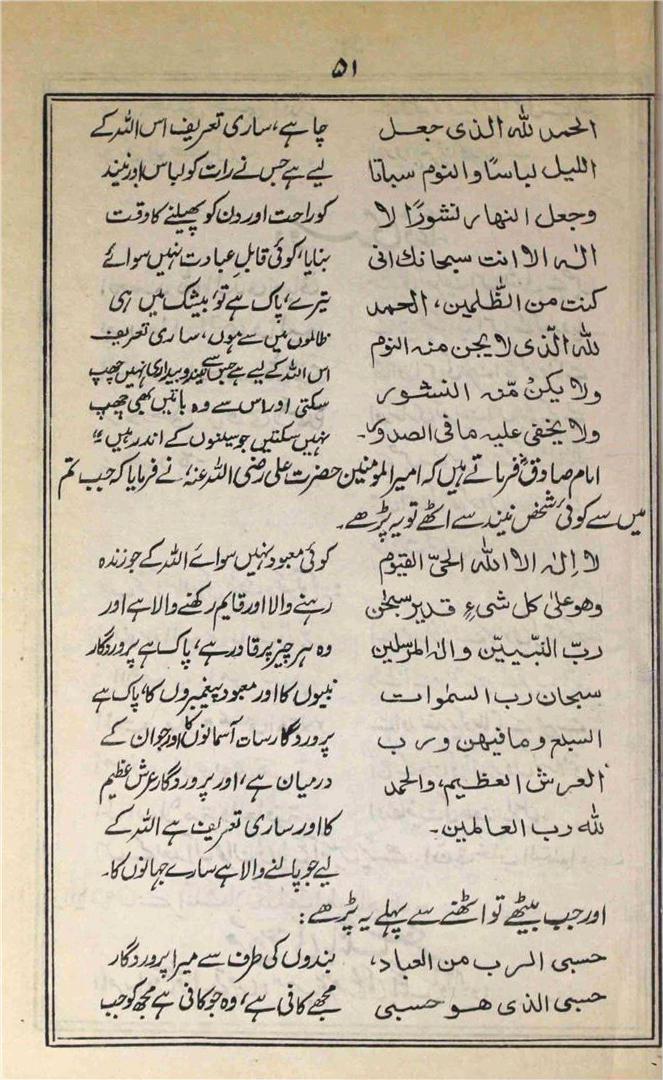 ۵۱
الحمد لله الذی جعل
اللیل لباسًا و النوم سباتا
وجعل النهار نشورًا لا
الٰہ الا انت سبحانك انی
کنت من الظّٰلمین، الحمد
للّٰه الّذی لا یجن منه النوم
ولا یکنّ مّنه النشور
ولا یخفی علیه ما فی الصدور۔
چاہے، ساری تعریف اس اللہ کے
لیے ہے جس نے رات کو لباس اور نیند
کو راحت اور دن کو پھیلنے کا وقت
بنایا، کوئی قابلِ عبادت نہیں سوائے
تیرے، پاک ہے تو، بیشک میں ہی
ظالموں میں سے ہوں، ساری تعریف
اس اللہ کے لیے ہے جس سے نیند و بیداری نہیں چھپ
سکتی اور اس سے وہ باتیں بھی چھپ
نہیں سکتیں جو سینوں کے اندر ہیں؛
امام صادقؑ فرماتے ہیں کہ امیر المومنین حضرت علی رضی اللہ عنہ، نے فرمایا کہ جب تم
میں سے کوئی شخص نیند سے اٹھے تو یہ پڑھے۔
لا اِلٰہ الا اللّٰه الحیّ القیوم
وھو علیٰ کل شیءٍ قدیر سبحٰن
ربّ النبّیینّ و الٰہ المرسلین
سبحان رب السمٰوات
السبع و ما فیهن و رب
العرش العظیم، والحمد
للّٰه رب العالمین۔
کوئی معبود نہیں سوائے اللہ کے جو زندہ
رہنے والا اور قایم رکھنے والا ہے اور
وہ ہر چیز پر قادر ہے، پاک ہے پروردگار
نبیوں کا اور معبود پیغمبروں کا، پاک ہے
پروردگار سات آسمانوں کا اور جو ان کے
درمیان ہے، اور پروردگار عرش عظیم
کا اور ساری تعریف ہے اللہ کے
لیے جو پالنے والا ہے سارے جہانوں کا۔
اور جب بیٹھے تو اٹھنے سے پہلے یہ پڑھے:
حسبی الرب من العباد،
حسبی الذی ھو حسبی
بندوں کی طرف سے میرا پروردگار
مجھے کافی ہے، وہ جو کافی ہے مجھ کو جب